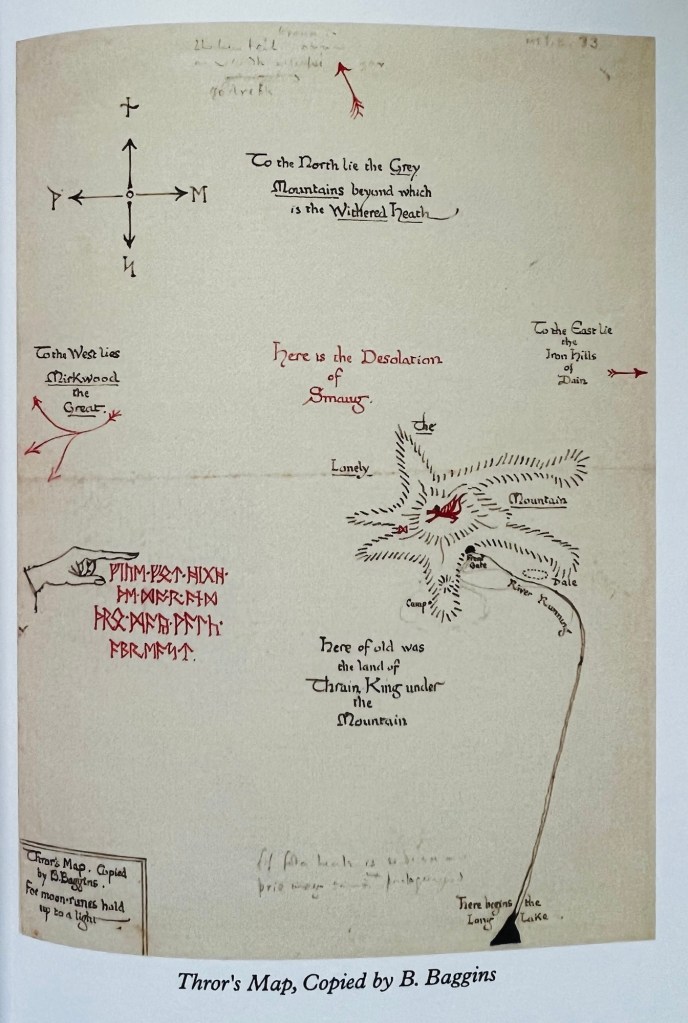 MS.D. 93
ᚾ
ᚹ ᛗ
ᛋ
To the North lie the Grey
Mountains beyond which
is the Withered Heath
To the West lies
Mirkwood
the
Great.
Here is the Desolation
of
Smaug.
To the East lie
the
Iron Hills
of
Dain
The
Lonely
Mountain
ᛞ
Front
Gate
Dale
River Running
Camp
ᚠᛁᚢᛖ·ᚠᛟᛏ·ᚻᛁᚷᚻ·
ᚦᛖ·ᛞᚩᚱ·ᚪᚾᛞ
ᚦᚱᛟ·ᛗᚪᚣ·ᚹᚪᛚᚳ·
ᚪᛒᚱᛖᚪᛋᛏ.
Here of old was
the land of
Thrain King under
the
Mountain
Thror's Map. Copied
by B.Baggins.
For moon-runes hold
up to a light
Here begins the
Long Lake.
Thror's Map, Copied by B. Baggins